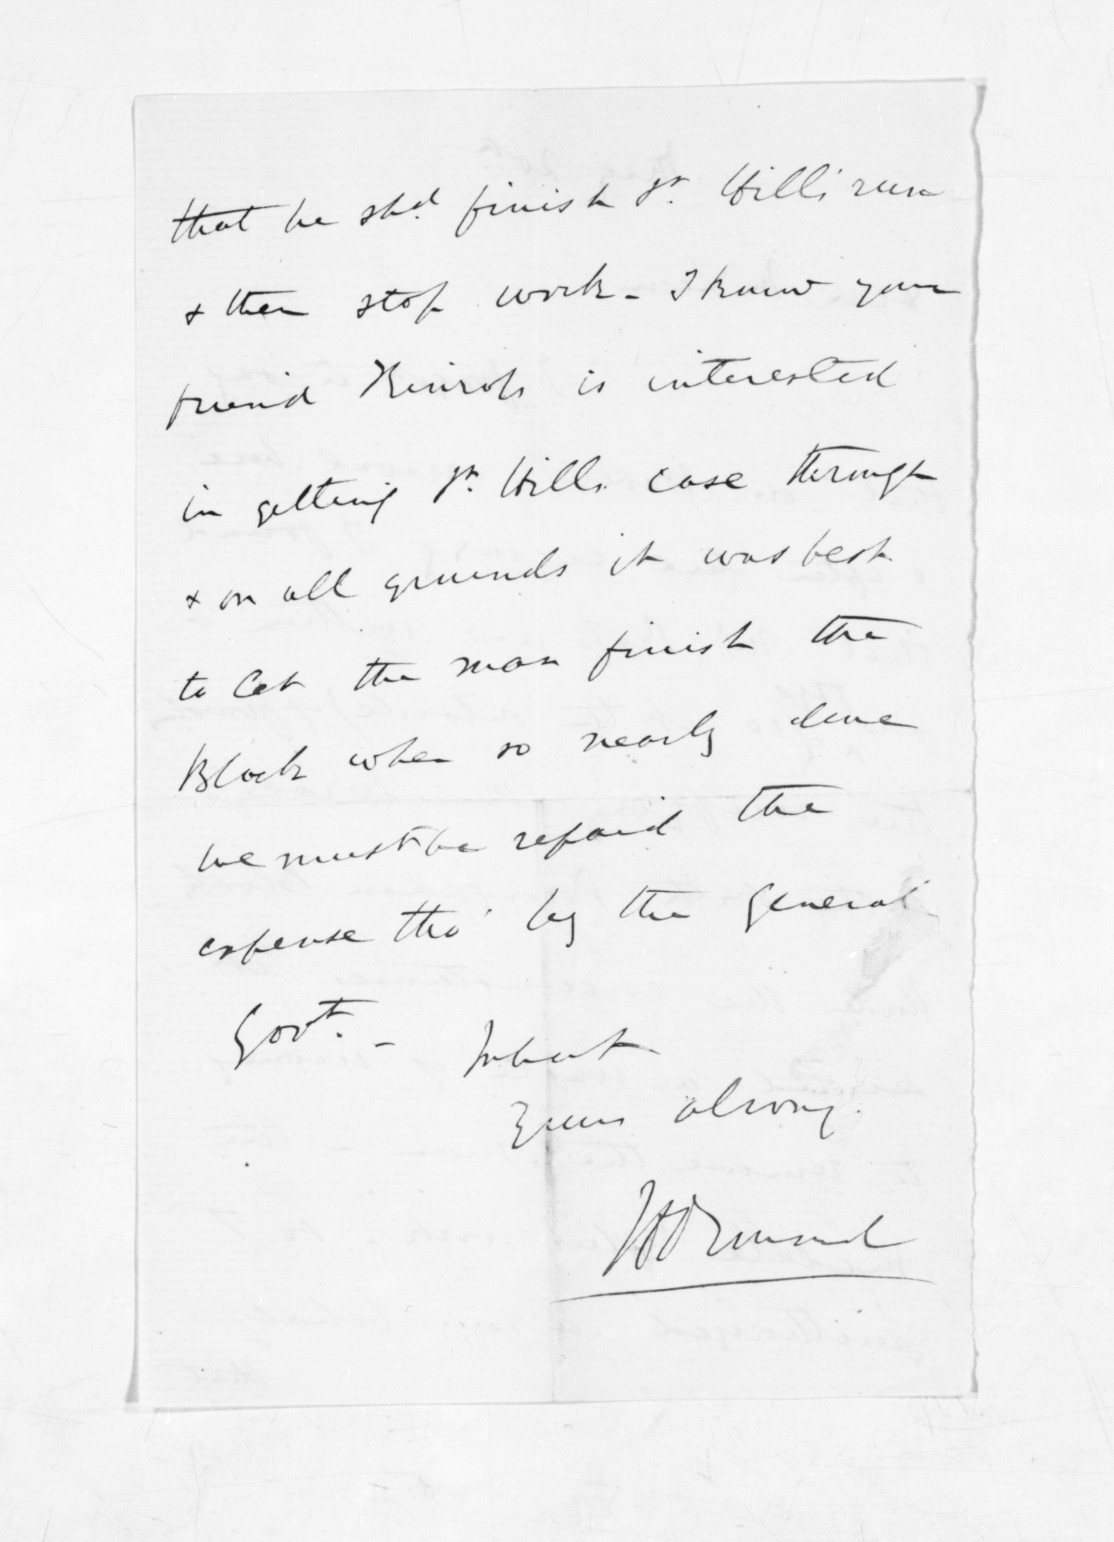 that he shd. finish Jn. Hill's run
& then stop work - I know your
friend Kinross is interested
in getting Jn. Hills case through
& on all grounds it was best
to let the man finish the
Block when so nearly done
we must be repaid the
expense tho' by the General
Govt. -
In haste
Yours always.
JD Ormond